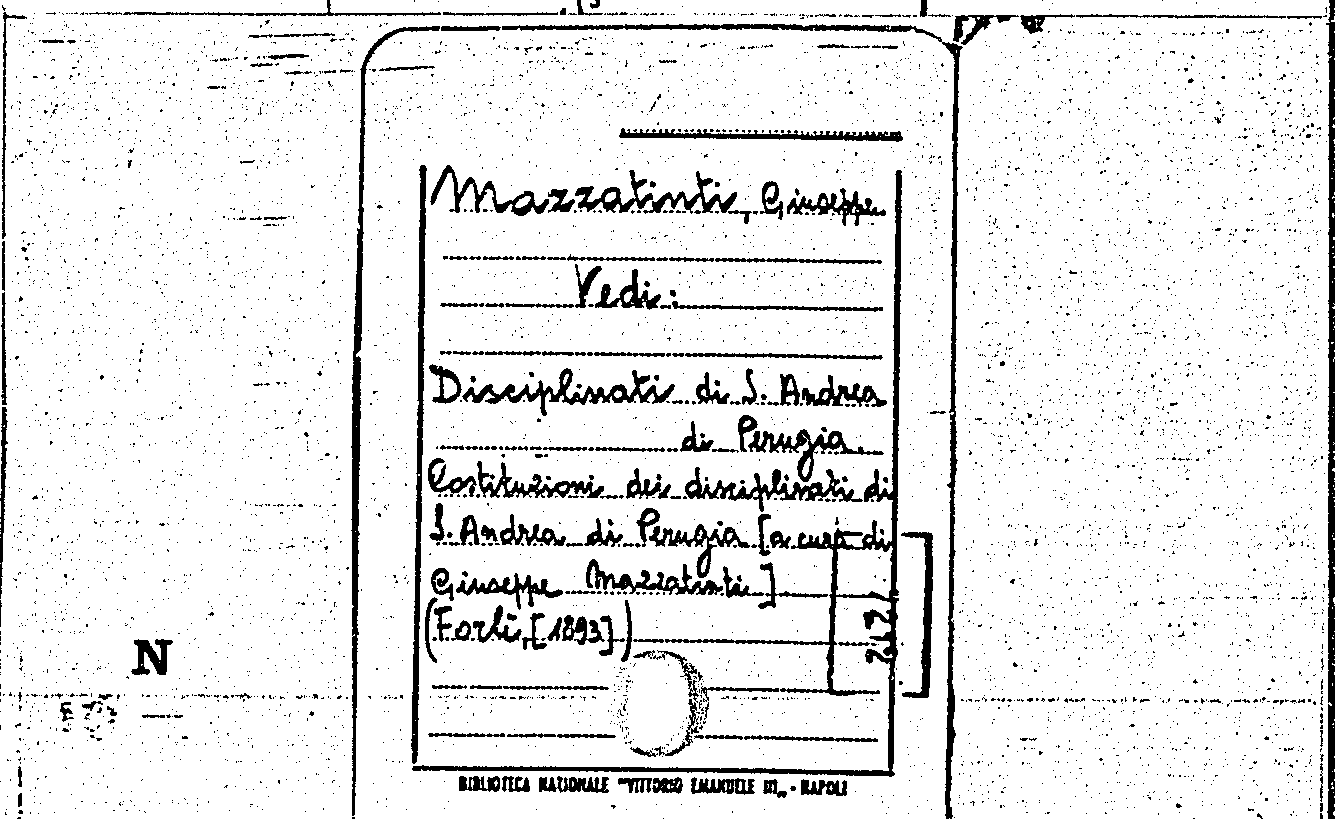 Mazzatinti, Giuseppe
Vedi:
Disciplinati di S. Andrea
di Perugia.
Costituzioni dei disciplinati di
S. Andrea di Perugia [a cura di
Giuseppe Mazzatinti]
(Forlì, [1893])
N
BIBLIOTECA NAZIONALE "VITTORIO EMANUELE III„ - NAPOLI